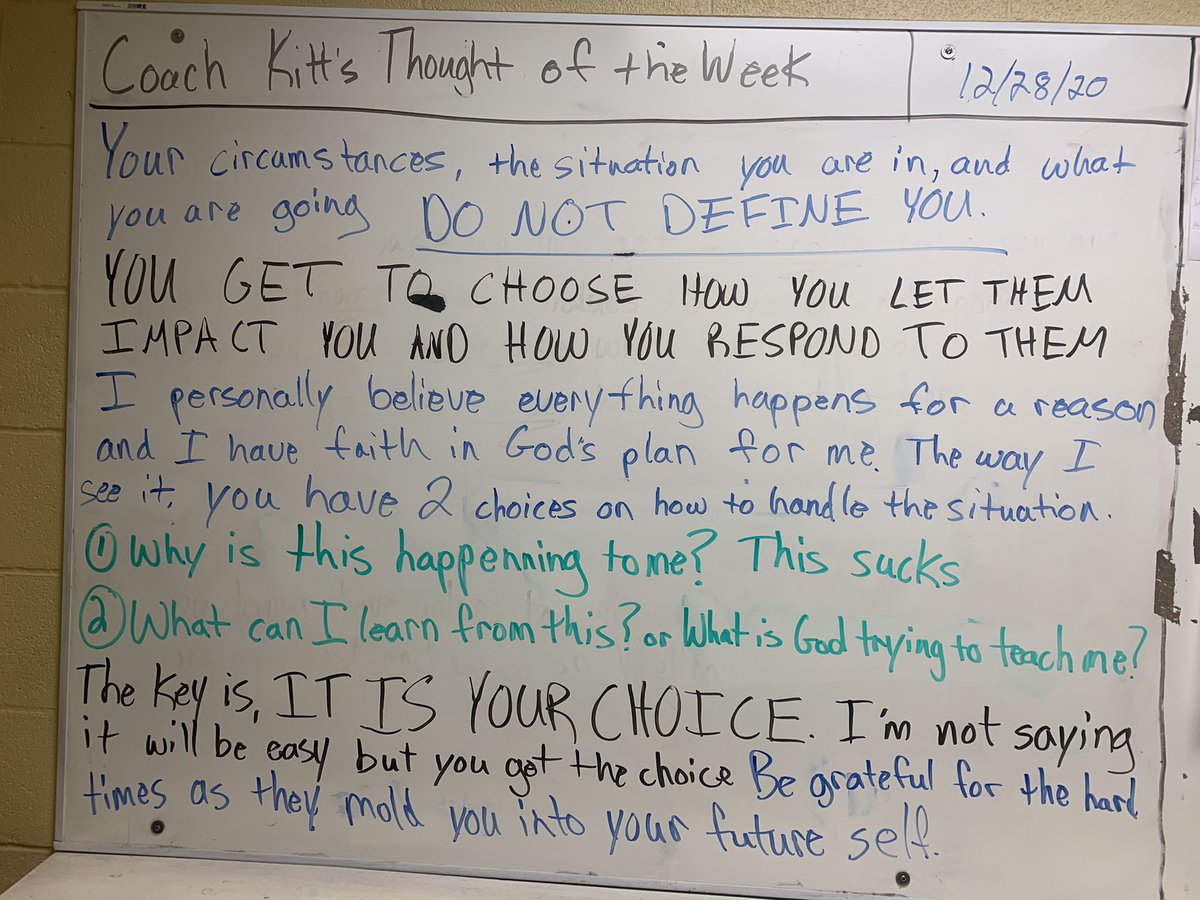 Coach Kitt's Thought of the Week
12/28/20
Your circumstances, the situation you are in, and what
you are going DO NOT DEFINE YOU.
YOU GET TO CHOOSE HOW YOU LET THEM
IMPACT YOU AND HOW YOU RESPOND TO THEM
I personally believe everything happens for a reason
and I have faith in God's plan for me. The way I
see it, you have 2 choices on how to handle the situation.
① Why is this happenning to me? This sucks
② What can I learn from this? or What is God trying to teach me?
The Key is, IT IS YOUR CHOICE. I'm not saying
it will be easy but you get the choice Be grateful for the hard
times as they mold you into your future self.